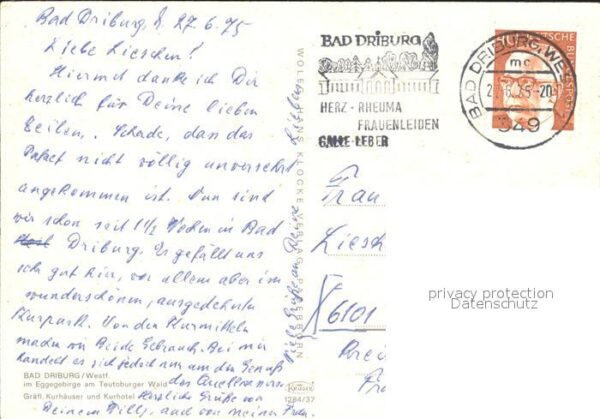 Bad Driburg, d. 27.6.75
Liebe Lieschen!
Hiermed danke ich Dir
herzlich für Deine lieben
Zeilen. Schade, dass das
Paket nicht völlig unversehrt
angekommen ist. Nun sind
wir schon seit 1 1/2 Wochen in Bad
Driburg. Es gefällt uns
sehr gut hier, vor allem aber im
wunderschönen, ausgedehnten
Kurpark. Von den Kurmitteln
machen wir Beide Gebrauch. Bei mir
handelt es sich jedoch nur um den Genuß
des
Herzliche Grüße von
Deinem Willy, auch von meiner
Viele Grüße an Deine Lieben
BAD DRIBURG/Westf.
im Eggegebirge am Teutoburger Wald
Gräfl. Kurhäuser und Kurhotel
WOLFGANG KLOCKE VERLAG, PADERBORN
Krüger
1284/37
BAD DRIBURG
HERZ - RHEUMA
FRAUENLEIDEN
GALLE-LEBER
BAD DRIBURG, WESTF
mc
.6.75-20
349
DEUTSCHE BUNDESPOST
Frau
Liesch
6101
privacy protection
Datenschutz